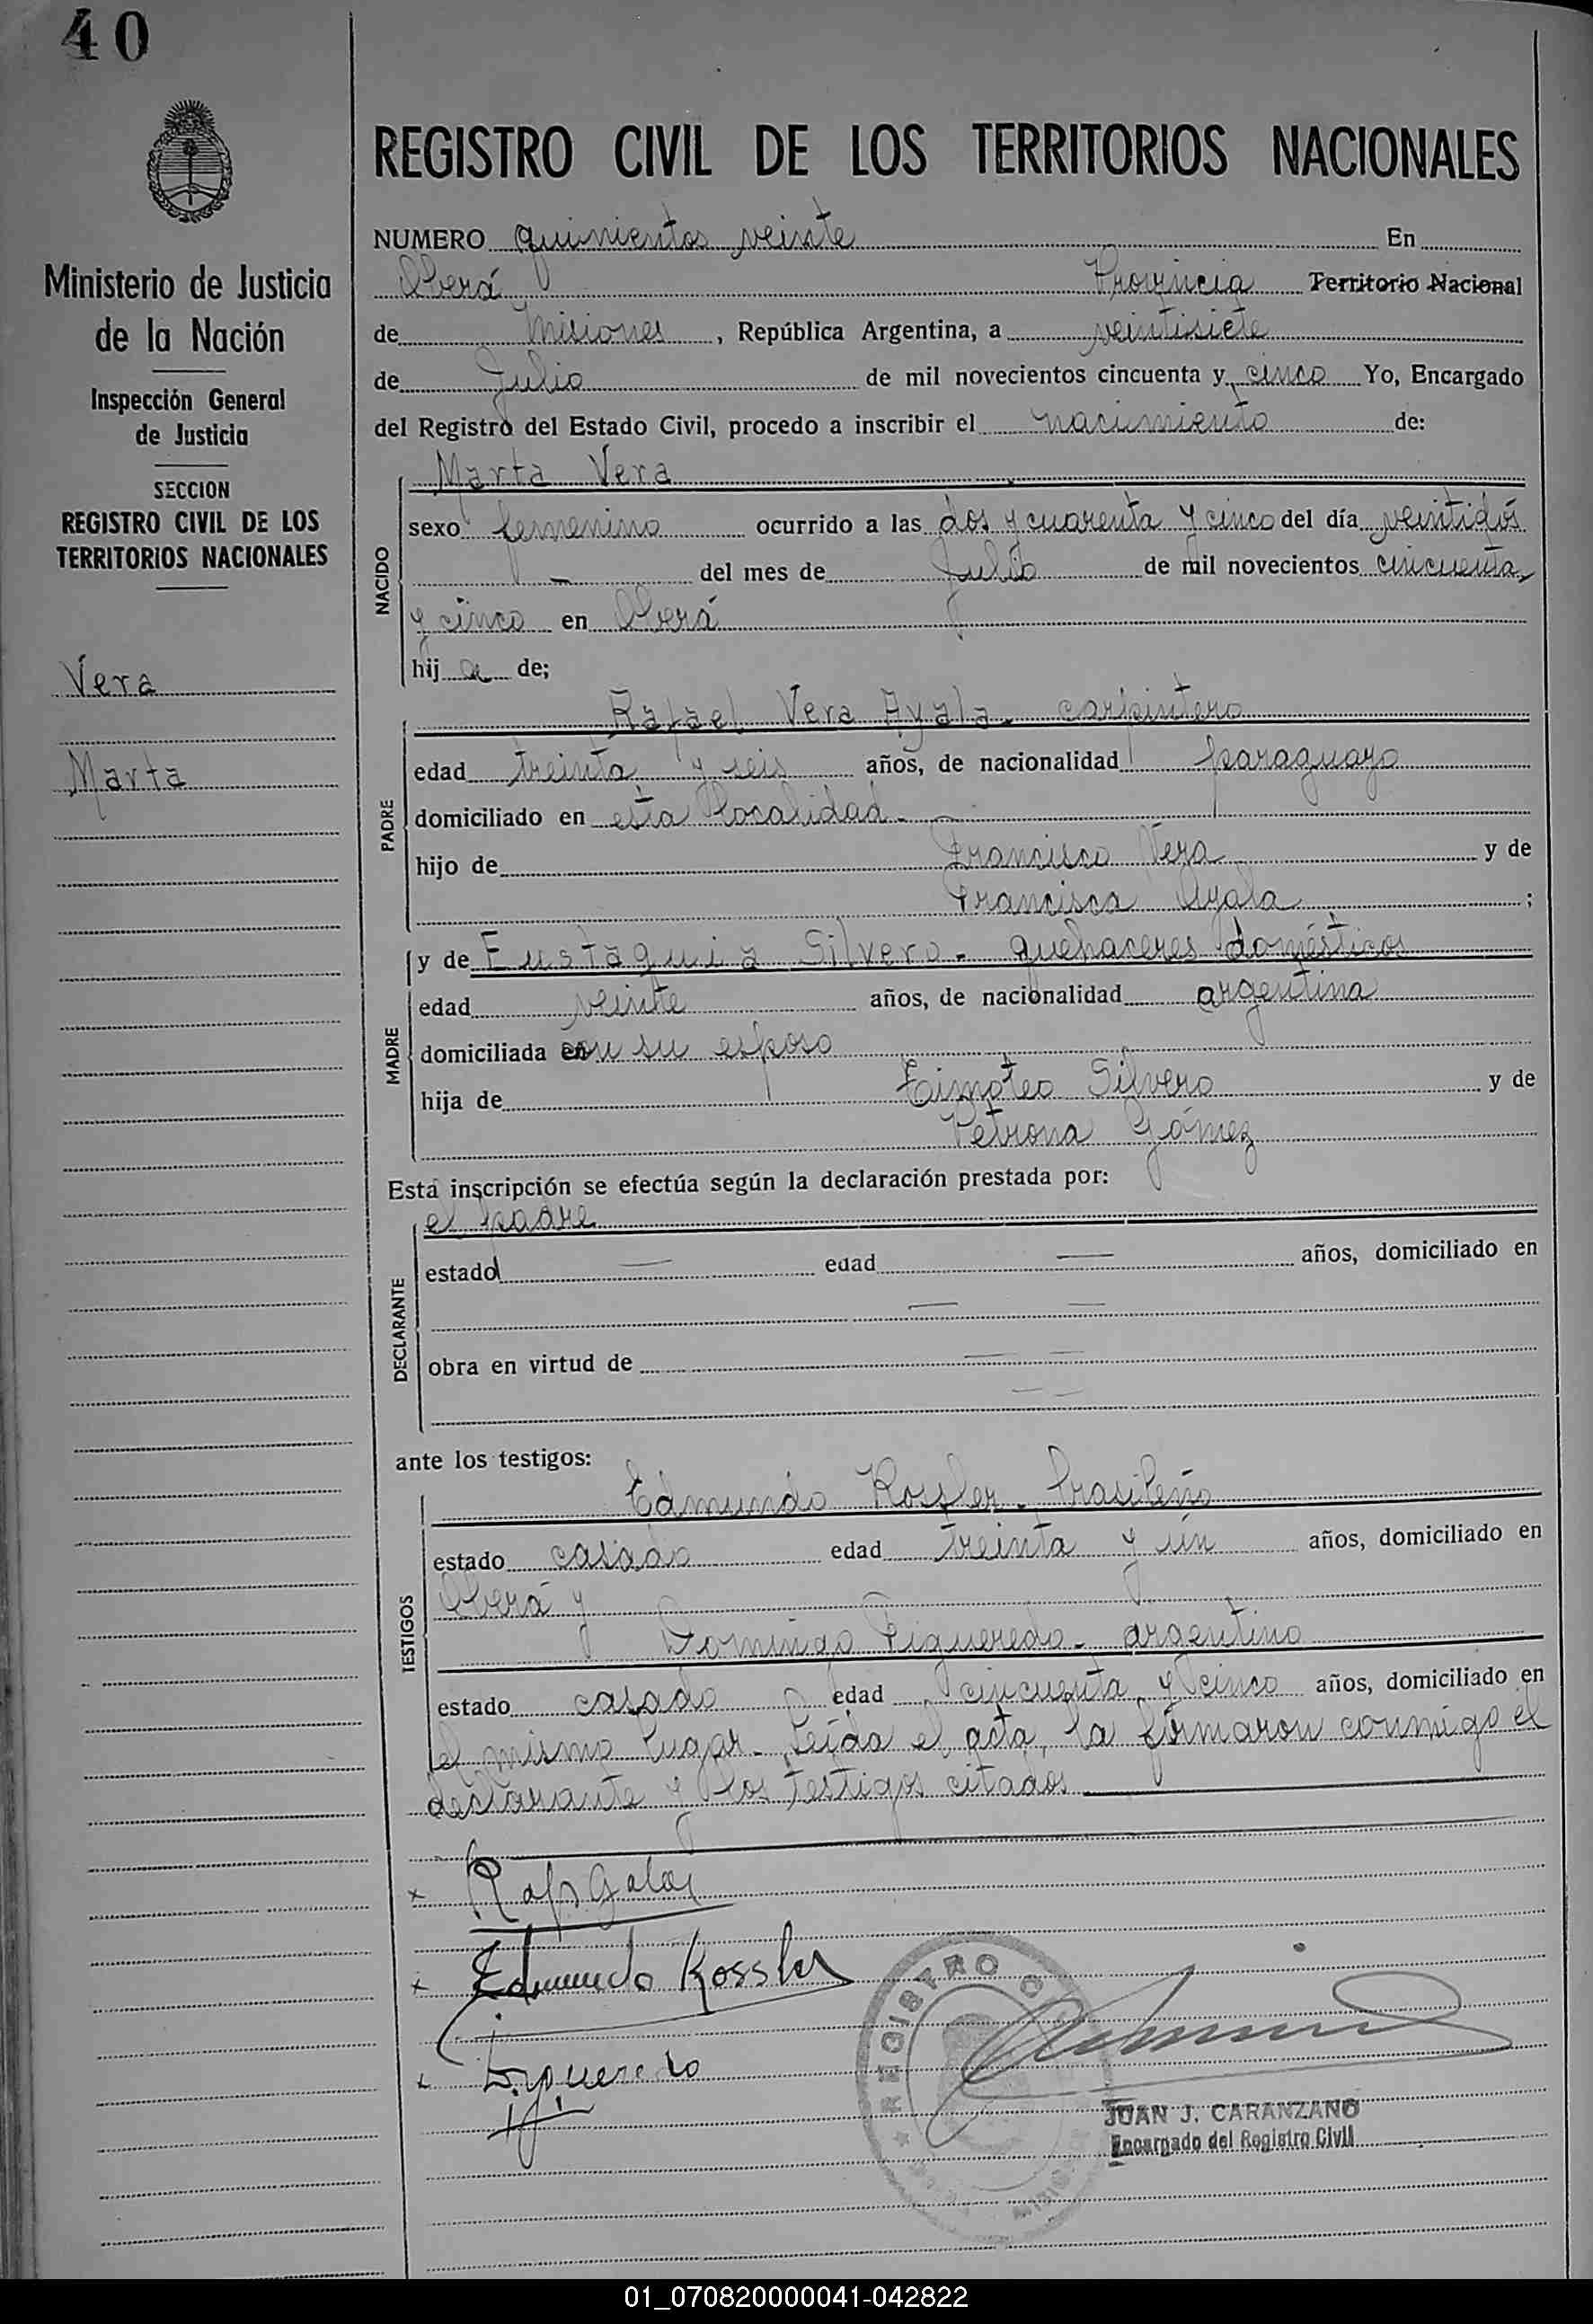 40
REGISTRO CIVIL DE LOS TERRITORIOS NACIONALES
Ministerio de Justicia
de la Nación
Inspección General
de Justicia
SECCION
REGISTRO CIVIL DE LOS
TERRITORIOS NACIONALES
Vera
Marta
NUMERO quinientos veinte En
Oberá Provincia Territorio Nacional
de Misiones, República Argentina, a veintisiete
de Julio de mil novecientos cincuenta y cinco Yo, Encargado
del Registro del Estado Civil, procedo a inscribir el nacimiento de:
NACIDO
Marta Vera
sexo femenino ocurrido a las dos y cuarenta y cinco del día veintidós
— del mes de Julio de mil novecientos cincuenta
y cinco en Oberá
hija de;
PADRE
Rafael Vera Ayala - carpintero
edad treinta y seis años, de nacionalidad paraguayo
domiciliado en esta localidad -
hijo de Francisco Vera y de
Francisca Ayala ;
MADRE
y de Eustaquia Silvero - quehaceres domésticos
edad veinte años, de nacionalidad argentina
domiciliada con su esposo
hija de Timoteo Silvero y de
Petrona Gómez
Esta inscripción se efectúa según la declaración prestada por:
DECLARANTE
el padre
estado — edad — años, domiciliado en
— —
obra en virtud de — —
— —
ante los testigos:
TESTIGOS
Edmundo Kossler - brasileño
estado casado edad treinta y un años, domiciliado en
Oberá y
Domingo Figueredo - argentino
estado casado edad cincuenta y cinco años, domiciliado en
el mismo lugar - Leída el acta, la firmaron conmigo el
declarante y los testigos citados
x
x Edmundo Kossler
x Figueredo
REGISTRO
JUAN J. CARANZANO
Encargado del Registro Civil
01_070820000041-042822